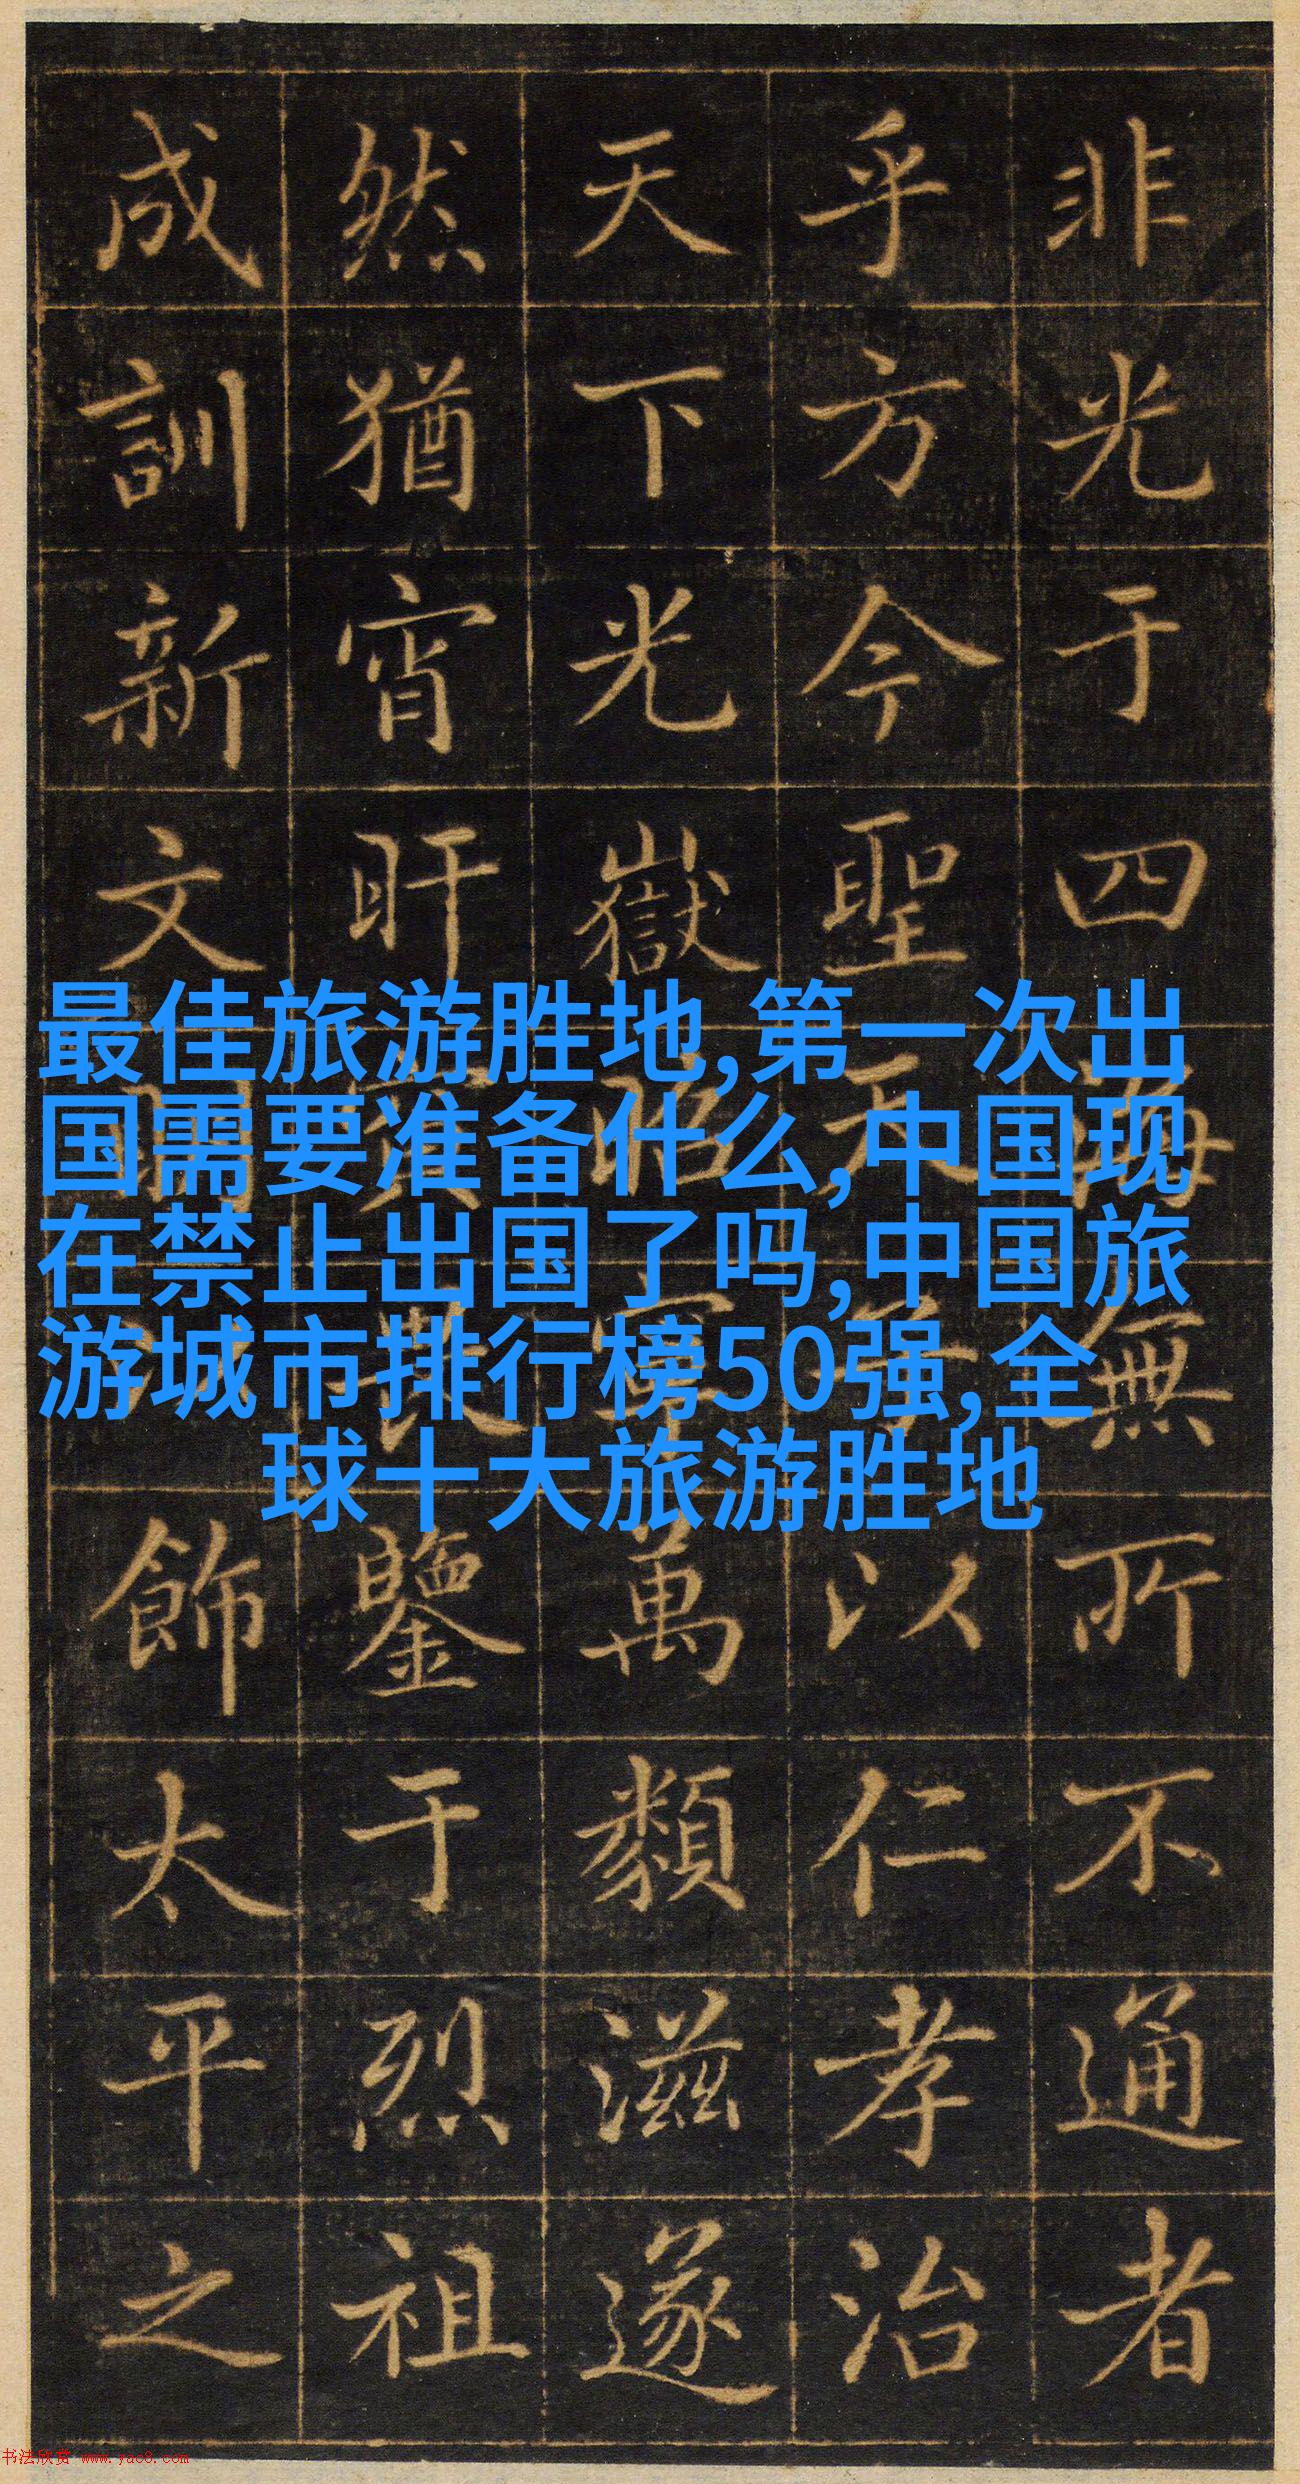 非光于四海無所不通者
乎方今聖天子以仁孝治
天下光嶽昭寧萬類滋遂
然猶宵旰鑒于烈祖
成訓新文飾太平之
最佳旅游胜地,第一次出
国需要准备什么,中国现
在禁止出国了吗,中国旅
游城市排行榜50强,全
球十大旅游胜地
书法欣赏 www.yac8.com